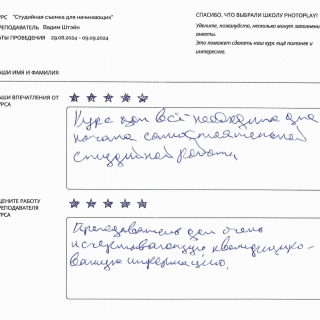 УРС "Студийная съемка для начинающих"
РЕПОДАВАТЕЛЬ Вадим Штэйн
АТЫ ПРОВЕДЕНИЯ 29.08.2024 - 09.09.2024
СПАСИБО, ЧТО ВЫБРАЛИ ШКОЛУ PHOTOPLAY!
Уделите, пожалуйста, несколько минут заполнению
анкеты.
Это поможет сделать наш курс ещё полезнее и
интереснее.
АШИ ИМЯ И ФАМИЛИЯ
АШИ ВПЕЧАТЛЕНИЯ ОТ
УРСА
Курс дал всё необходимое для
начала самостоятельной
студийной работы,
ЦЕНИТЕ РАБОТУ
РЕПОДАВАТЕЛЯ
УРСА
Преподаватель дал очень
исчерпывающую квалифициро-
ванную информацию.